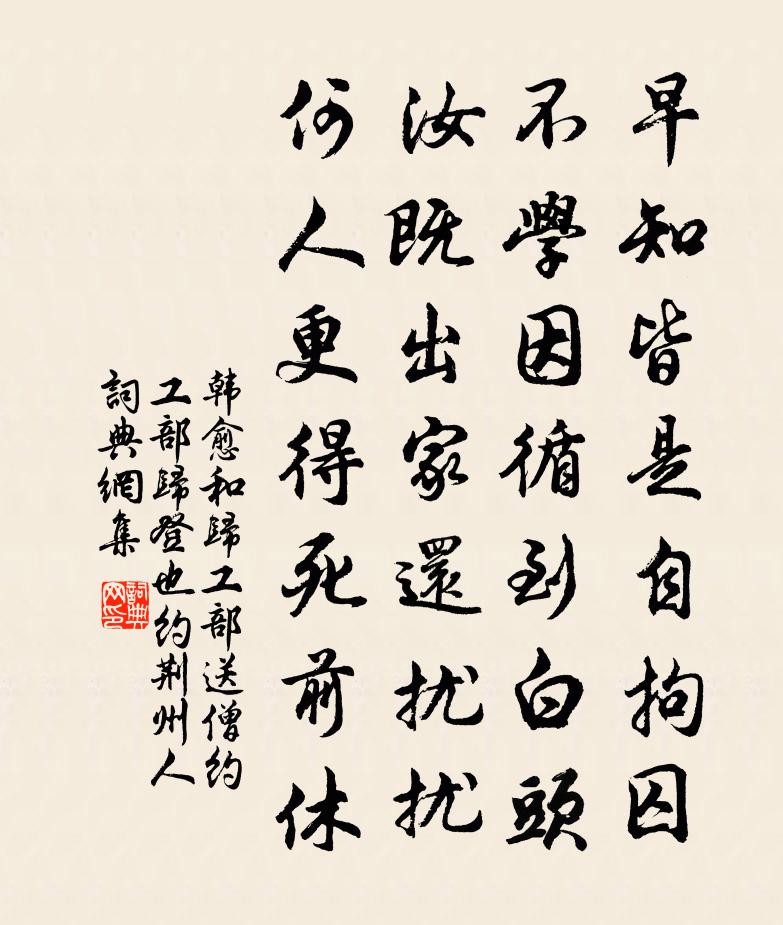 早知皆是自拘囚
不學因循到白頭
汝既出家還扰扰
何人更得死前休
韩愈和歸工部送僧約
工部歸登也約荆州人
詞典網集
詞典
网印